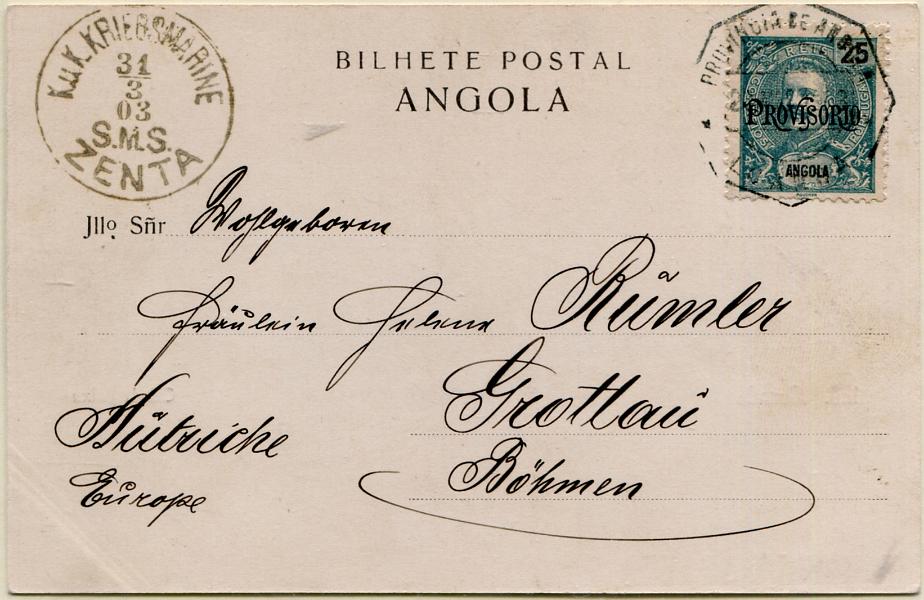 K.u.K. KRIEGSMARINE
31
3
03
S.M.S.
ZENTA
BILHETE POSTAL
ANGOLA
PROVINCIA DE ANG
25
PROVISORIO
ANGOLA
Jllo. Sñr Wohlgeboren
Fräulein Helene Rümler
Grottau
Autriche
Böhmen
Europe